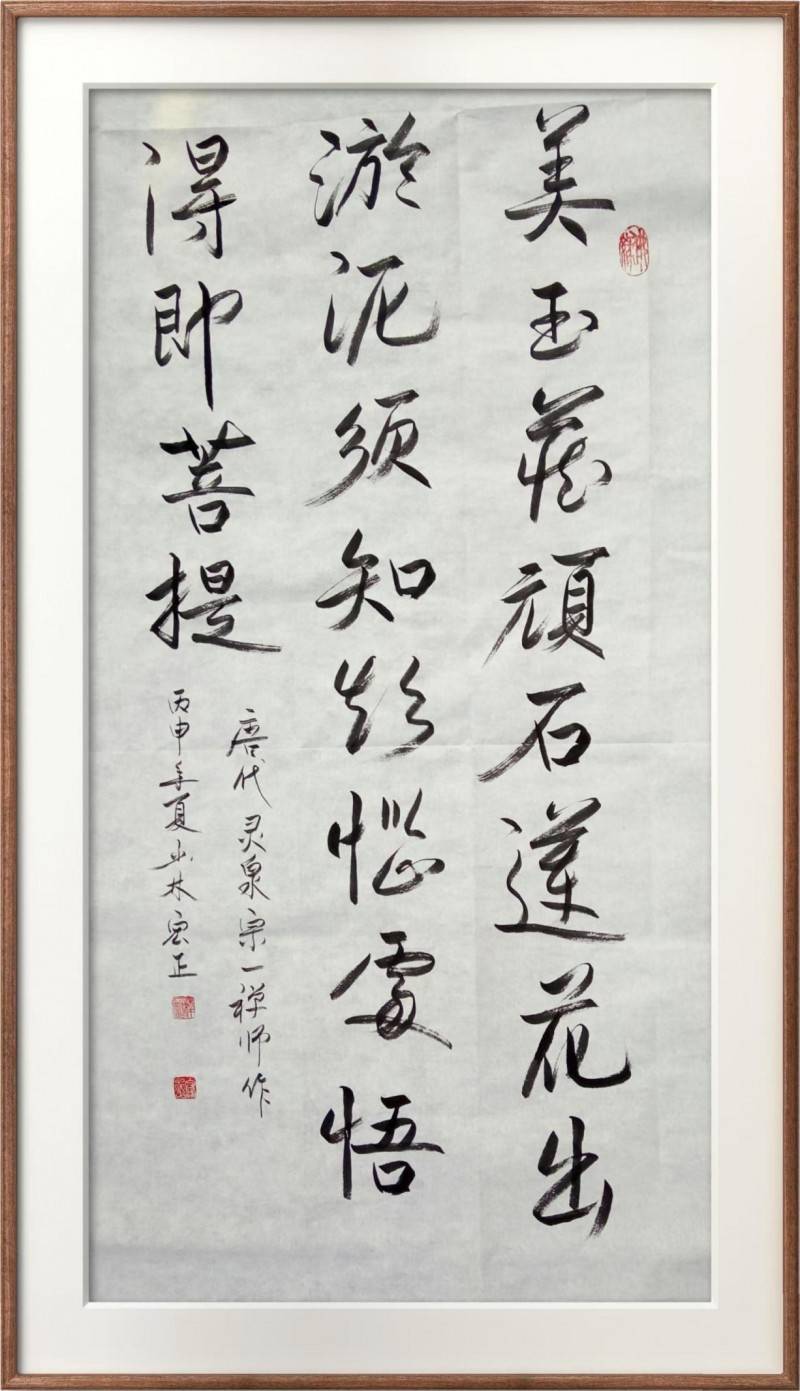 美玉藏頑石蓮花出
淤泥须知煩惱處悟
得即菩提
唐代灵泉宗一禅师作
丙申年夏少林宏正